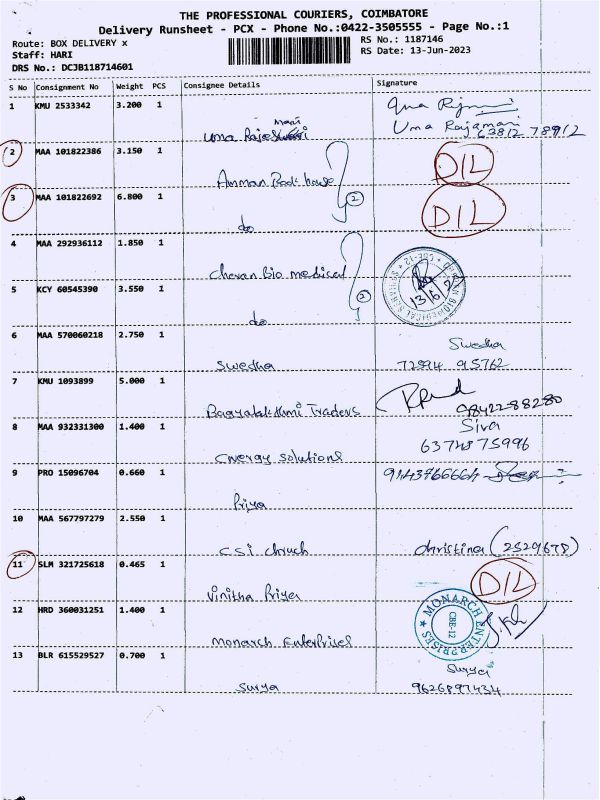 THE PROFESSIONAL COURIERS, COIMBATORE
Delivery Runsheet - PCX - Phone No.:0422-3505555 - Page No.:1
Route: BOX DELIVERY x
RS No.: 1187146
Staff: HARI
RS Date: 13-Jun-2023
DRS No.: DCJB118714601
S No Consignment No Weight PCS Consignee Details Signature
1 KMU 2533342 3.200 1
Uma Rajeswari Uma Rajamani
63812 78912
2 MAA 101822386 3.150 1 D/L
Amman Book house
3 MAA 101822692 6.800 1 2 D/L
do
4 MAA 292936112 1.850 1
Cheran Bio medical
5 KCY 60545390 3.550 1 2 13/6
do
6 MAA 570060218 2.750 1 Swedha
Swedha 72994 95762
7 KMU 1093899 5.000 1
Bagyalakshmi Traders 9842288280
8 MAA 932331300 1.400 1 Siva
6374875996
Energy Solutions
9 PRO 15096704 0.660 1 9143766664
Priya
10 MAA 567797279 2.550 1
CSI Chruch christina (2529678)
11 SLM 321725618 0.465 1 D/L
Vinitha Priya
12 HRD 360031251 1.400 1 MONARCH ENTERPRISES CBE-12
Monarch Enterprises
13 BLR 615529527 0.700 1 Surya
Surya 9626897434